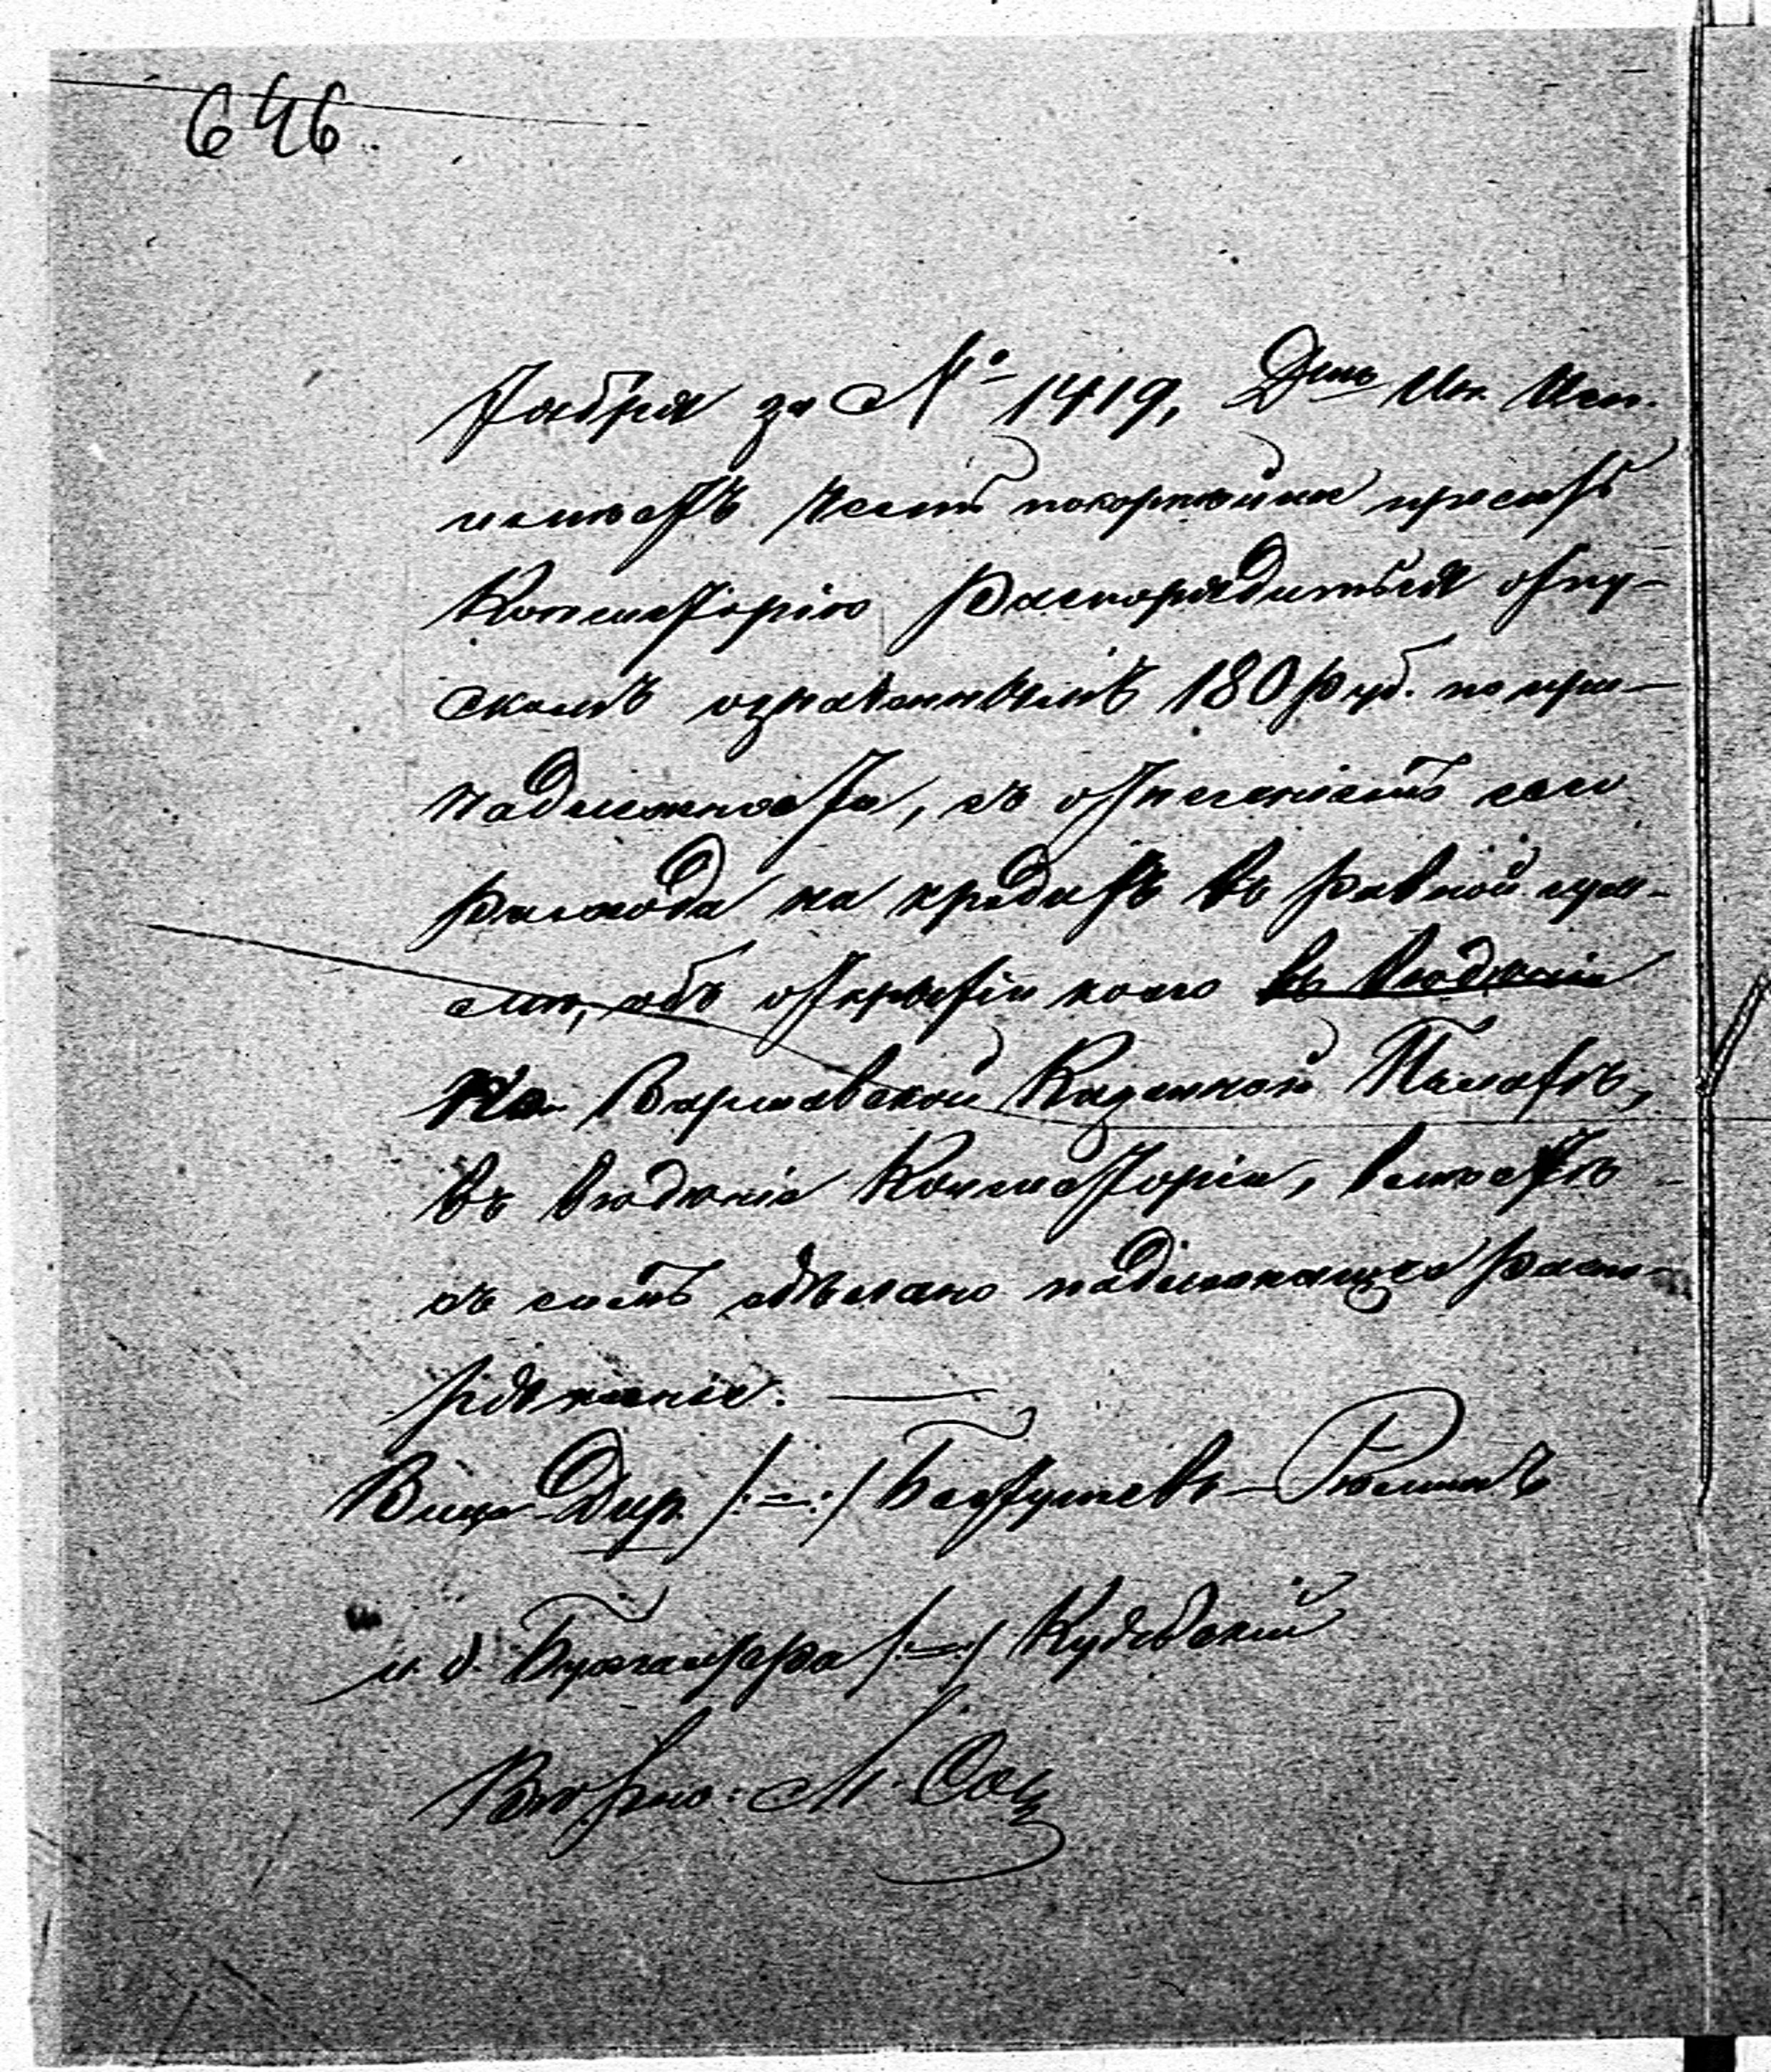 646
тября за № 1419, Д-тъ Ин. Исп.
имѣетъ честь покорнѣйше просить
Консисторію распорядиться отпу-
скомъ означенныхъ 180 руб. по при-
надлежности, съ отнесеніемъ сего
расхода на кредитъ въ равной сум-
мѣ, объ открытіи коего въ вѣдѣніе
по Варшавской Казенной Палатѣ,
въ вѣдѣніе Консисторіи, вмѣстѣ
съ симъ сдѣлано надлежащее распо-
ряженіе.
Вице-Дир. /:-:/ Бестужевъ-Рюминъ
и. д. Бухгалтера /:-:/
Вѣрно: